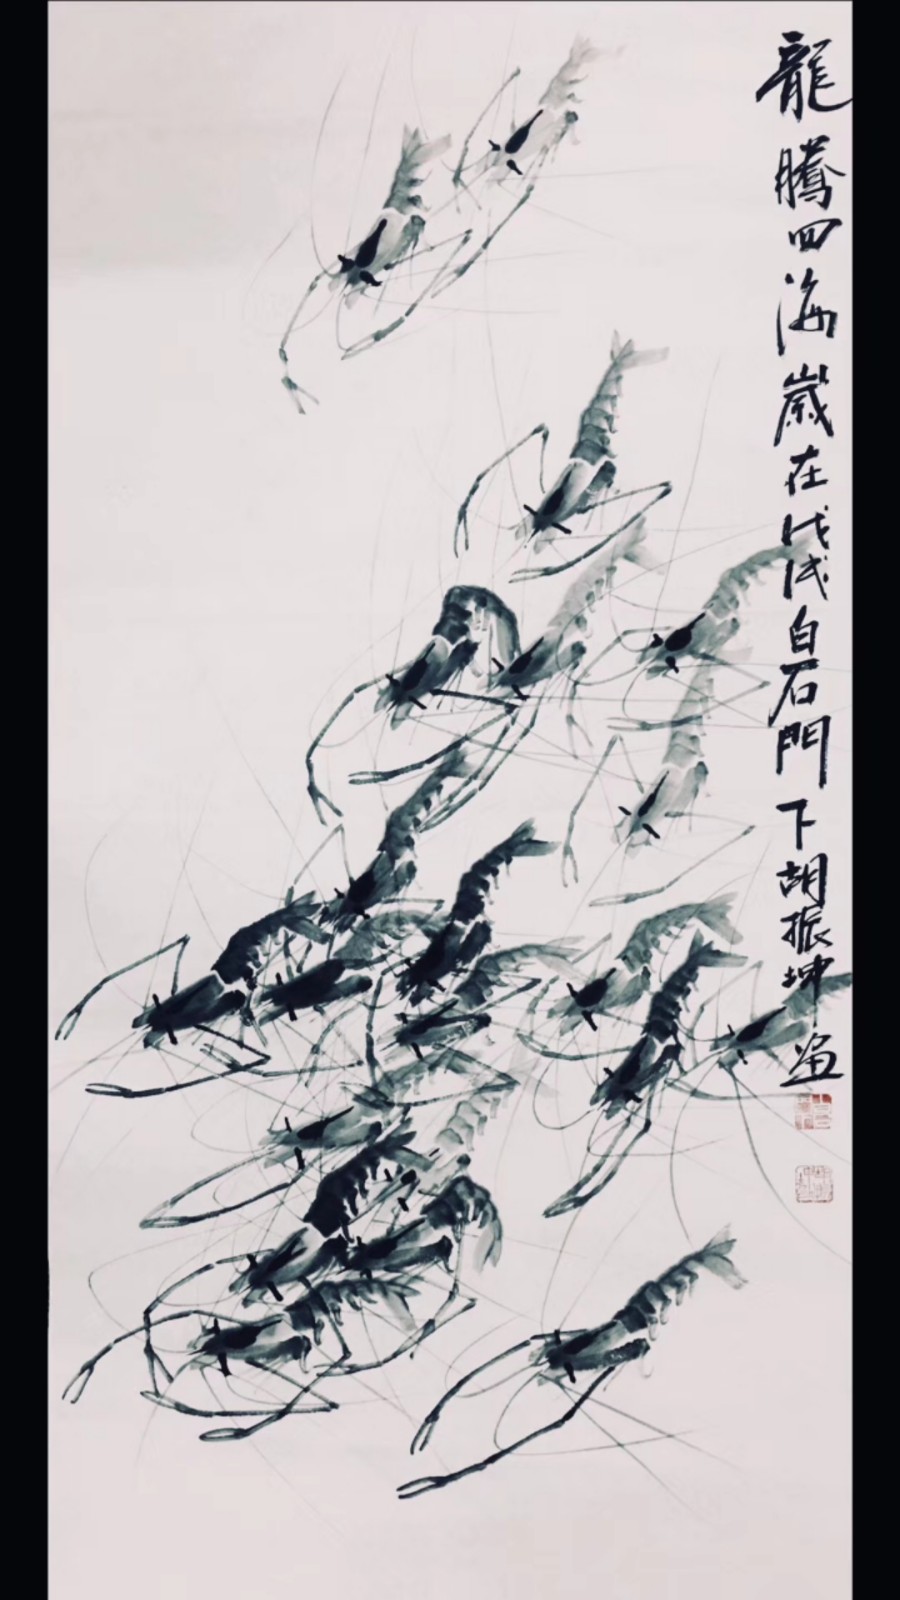 龍騰四海歲在戊戌白石門下胡振坤画